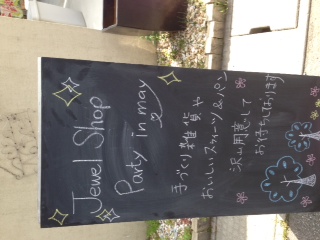 Jewel Shop
Party in may
手づくり雑貨や
おいしいスイーツ&パン
沢山用意して
お待ちしております